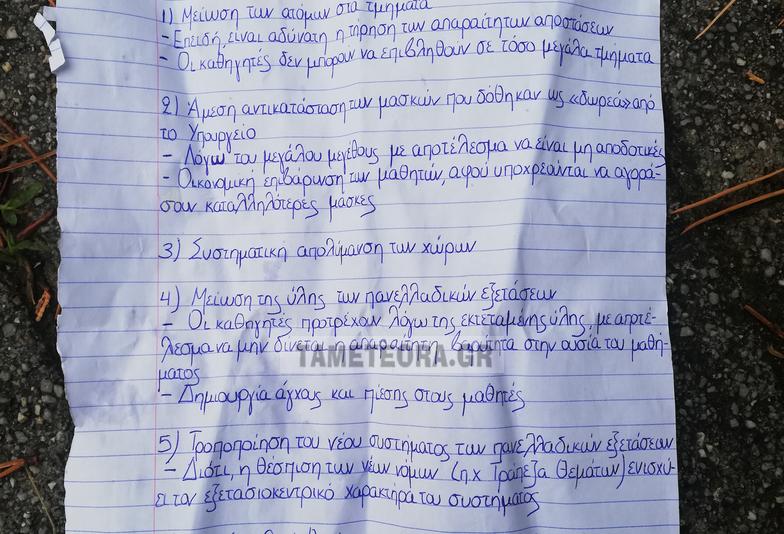 1) Μείωση των ατόμων στα τμήματα
- Επειδή, είναι αδύνατη η τήρηση των απαραίτητων αποστάσεων
- Οι καθηγητές δεν μπορούν να επιβληθούν σε τόσο μεγάλα τμήματα
2) Άμεση αντικατάσταση των μασκών που δόθηκαν ως «δωρεά» από
το Υπουργείο
- Λόγω του μεγάλου μεγέθους με αποτέλεσμα να είναι μη αποδοτικές
- Οικονομική επιβάρυνση των μαθητών, αφού υποχρεούνται να αγορά-
σουν καταλληλότερες μάσκες
3) Συστηματική απολύμανση των χώρων
4) Μείωση της ύλης των πανελλαδικών εξετάσεων
- Οι καθηγητές προτρέχουν λόγω της εκτεταμένης ύλης, με αποτέ-
λεσμα να μην δίνεται η απαραίτητη βαρύτητα στην ουσία του μαθή-
TAMETEORA.GR
ματος
- Δημιουργία άγχους και πίεσης στους μαθητές
5) Τροποποίηση του νέου συστήματος των πανελλαδικών εξετάσεων
- Διότι, η θέσπιση των νέων νόμων (π.χ Τράπεζα Θεμάτων) ενισχύ-
ει τον εξετασιοκεντρικό χαρακτήρα του συστήματος